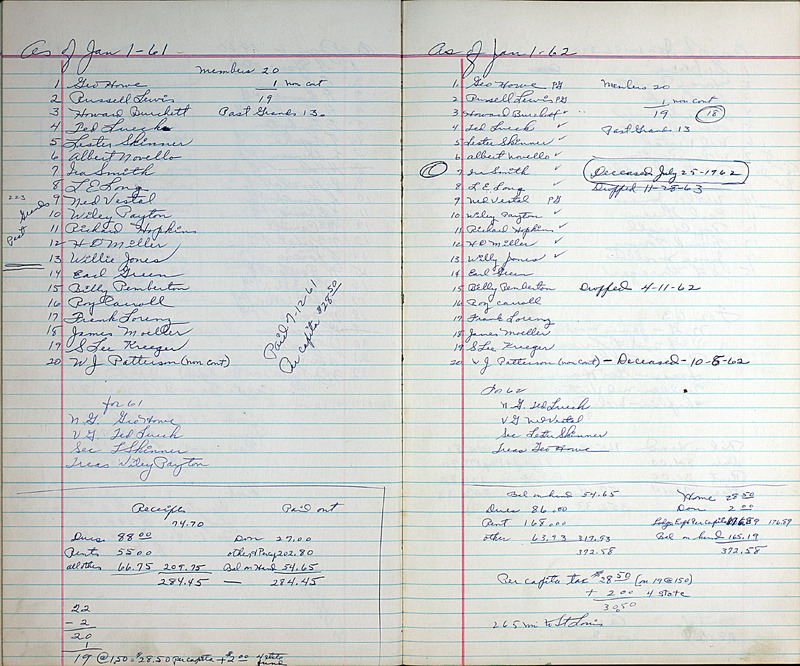 As of Jan 1-61
Members 20
1 non cont
19
Past Grands 13
1 Geo Howe
2 Russell Lewis
3 Howard Burchett
4 Ted Lueck
5 Lester Skinner
6 Albert Novello
7 Ira Smith
8 L E Long
9 Ned Vestal
10 Wiley Payton
11 Richard Hopkins
12 H D Miller
13 Willie Jones
14 Earl Green
15 Billy Pemberton
16 Roy Carroll
17 Frank Lorenz
18 James Moeller
19 S Lee Kreeger
20 W J Patterson (non cont)
Grands
Past
Paid 7-12-61
Per capita $28.50
for 61
N.G. Geo Howe
V G Ted Lueck
Sec L Skinner
Treas Wiley Payton
Receipts Paid out
74.70
Dues 88 00 Don 27.00
Rents 55 00 202.80
all other 66.75 209.75 Bal on Hand 54.65
284.45 — 284.45
22
- 2
20
1
19 @ 150 = $28.50 per capita + $2 00 4 state fund
As of Jan 1-62
1 Geo Howe PG
2 Russell Lewis PG
3 Howard Burchett
4 Ted Lueck ✓
5 Lester Skinner ✓
6 albert novello ✓
7 Ira Smith ✓ Deceased July 25-1962
8 L. E Long ✓ Dropped 11-28-63
9 Ned Vestal PG
10 Wiley Payton ✓
11 Richard Hopkins ✓
12 H D Miller ✓
13 Willy Jones ✓
14 Earl Green
15 Billy Pemberton Dropped 4-11-62
16 Roy Carroll
17 Frank Lorenz
18 James Moeller
19 S Lee Kreeger
20 W J Patterson (non cont) – Deceased – 10-8-62
Members 20
1 non cont
19 18
Past Grands 13
for 62
N.G. Ted Lueck
V G Ned Vestal
Sec Lester Skinner
Treas Geo Howe
Bal on hand 54.65 Home 28 50
Dues 86.00 Don 2 00
Rent 168.00 176.89
other 63.93 317.93 Bal on hand 165.19
372.58 372.58
Per capita tax $28.50 (on 19 @ 150)
+ 2 00 4 state
30.50
265 mi to St Louis